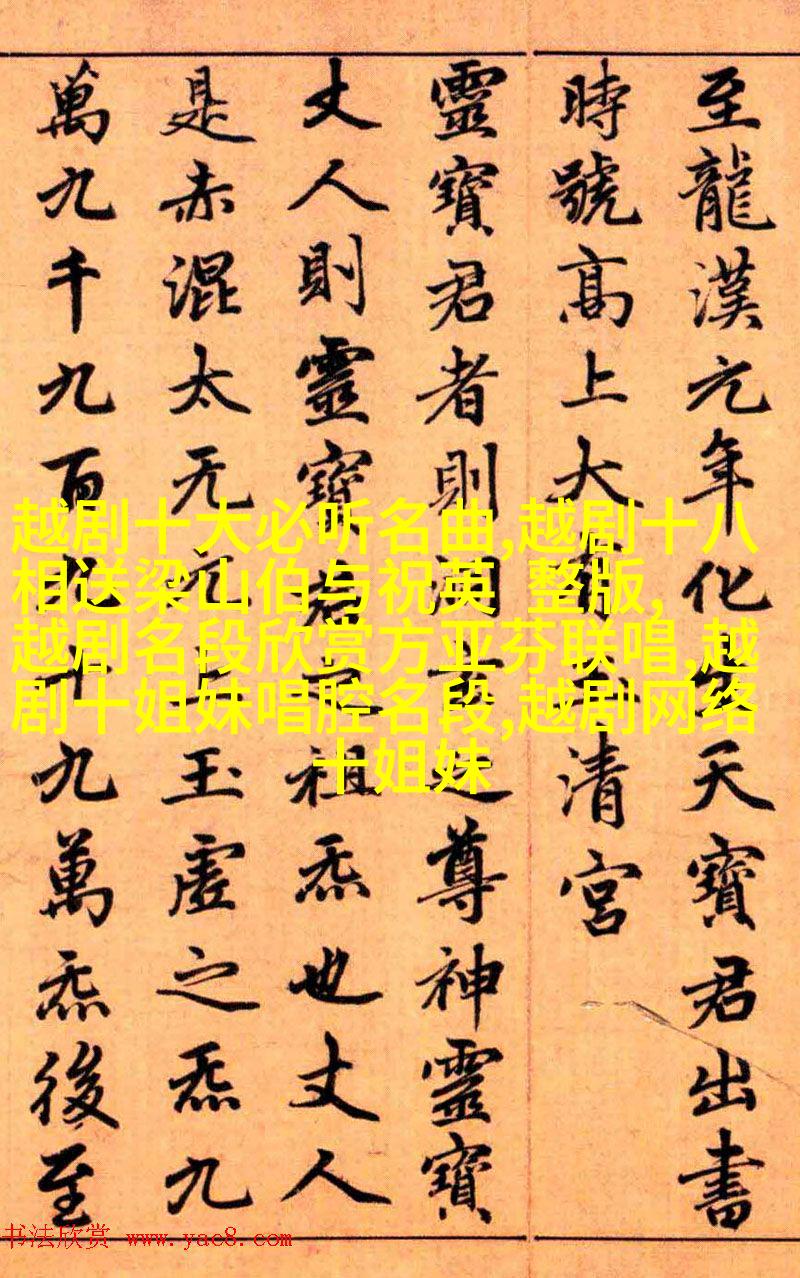 至龍漢元年化生天寶君出書
時號高上大有玉清宮
靈寶君者則洞玄之尊神靈寶
丈人則靈寶君之祖炁也丈人
是赤混太无元上玉虛之炁九
萬九千九百九十九萬炁後至
越剧十大必听名曲,越剧十八
相送梁山伯与祝英 整版,
越剧名段欣赏方亚芬联唱,越
剧十姐妹唱腔名段,越剧网络
十姐妹
书法欣赏 www.yac8.com